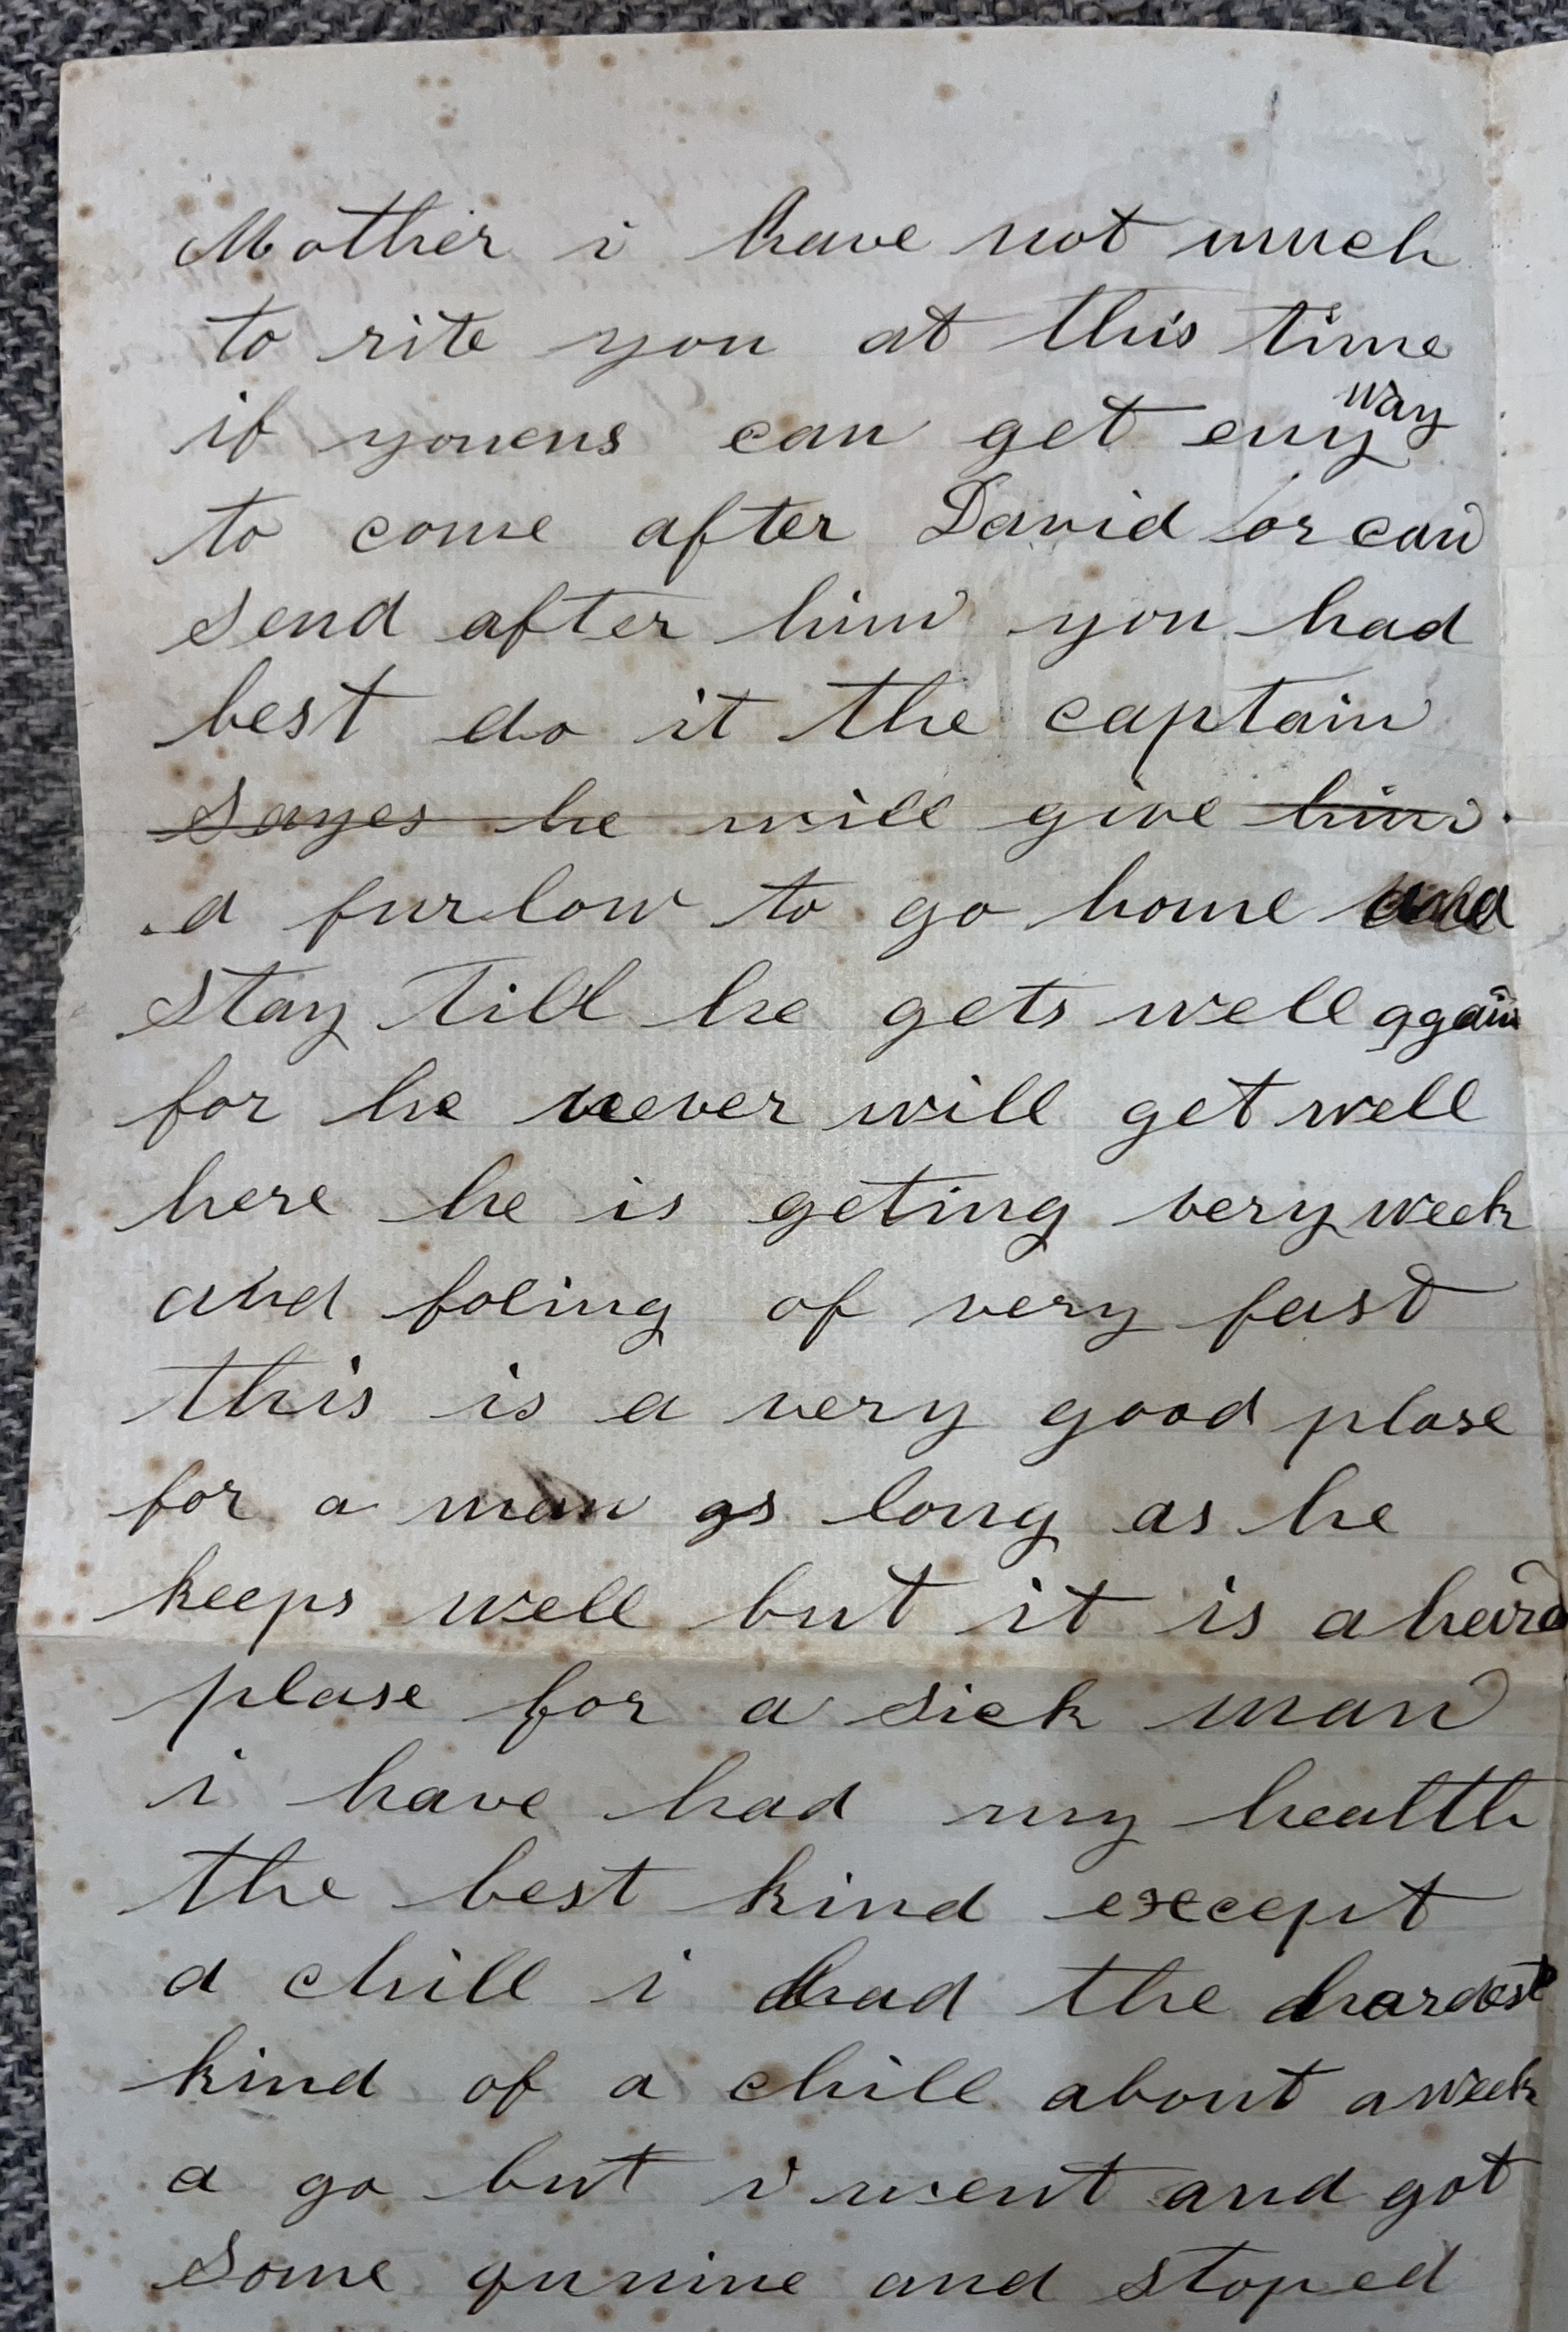 Mother i have not much
to rite you at this time
if youens can get eny way
to come after David or can
send after him you had
best do it the captain
sayes he will give him
a furlow to go home and
stay till he gets well again
for he never will get well
here he is geting very week
and foling of very fast
this is a very good plase
for a man as long as he
keeps well but it is a hard
plase for a sick man
i have had my health
the best kind except
a chill i had the hardest
kind of a chill about a week
a go but i went and got
some qunine and stoped